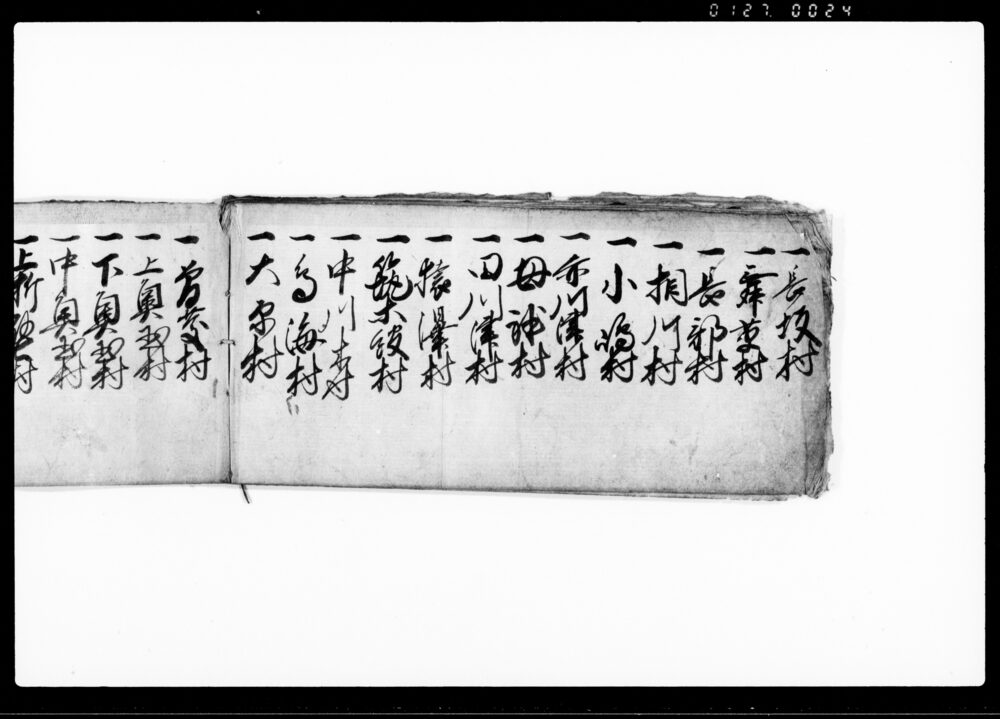 0127 0024
一長坂村
一舞草村
一長部村
一相川村
一小嶋村
一赤川津村
一母躰村
一田川津村
一猿澤村
一村
一中川村
一鳥海村
一大原村
一曽慶村
一上奥玉村
一下奥玉村
一中奥玉村
一上折壁村